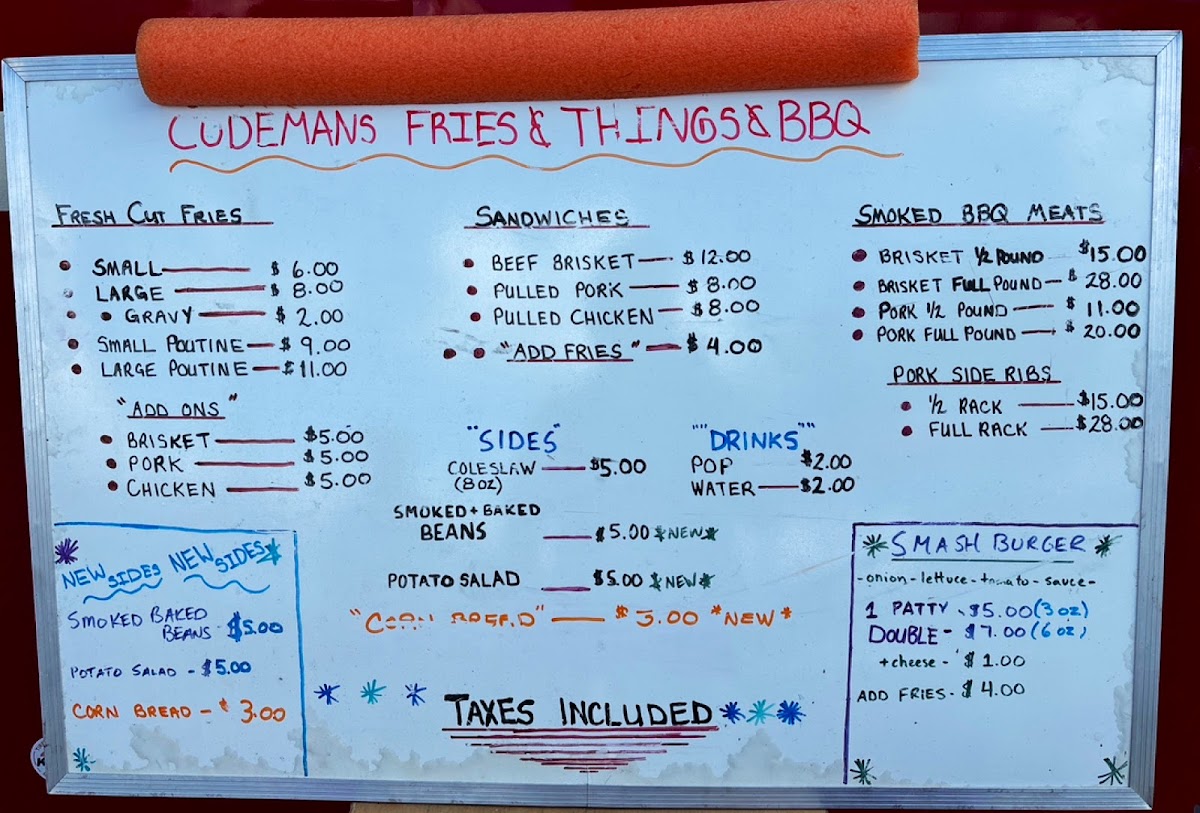 CUDEMANS FRIES & THINGS & BBQ
FRESH CUT FRIES
• SMALL — $6.00
• LARGE — $8.00
• • GRAVY — $2.00
• SMALL POUTINE — $9.00
• LARGE POUTINE — $11.00
"ADD ONS"
• BRISKET — $5.00
• PORK — $5.00
• CHICKEN — $5.00
SANDWICHES
• BEEF BRISKET — $12.00
• PULLED PORK — $8.00
• PULLED CHICKEN — $8.00
• • "ADD FRIES" — $4.00
SMOKED BBQ MEATS
• BRISKET 1/2 POUND $15.00
• BRISKET FULL POUND — $28.00
• PORK 1/2 POUND — $11.00
• PORK FULL POUND — $20.00
PORK SIDE RIBS
• 1/2 RACK — $15.00
• FULL RACK — $28.00
"SIDES"
COLESLAW — $5.00
(8 OZ)
SMOKED + BAKED
BEANS — $5.00 *NEW*
POTATO SALAD — $5.00 *NEW*
"CORN BREAD" — $3.00 *NEW*
""DRINKS""
POP $2.00
WATER — $2.00
NEW SIDES NEW SIDES
SMOKED BAKED
BEANS - $5.00
POTATO SALAD - $5.00
CORN BREAD - $3.00
* * * TAXES INCLUDED * * *
* SMASH BURGER *
- onion - lettuce - tomato - sauce -
1 PATTY - $5.00 (3 oz)
DOUBLE - $7.00 (6 oz)
+ cheese - $1.00
ADD FRIES - $4.00